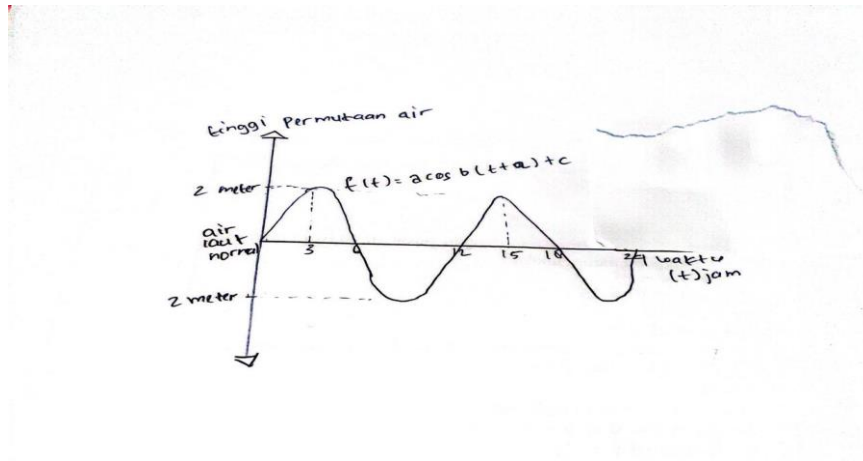 tinggi permukaan air
2 meter
f(t) = a cos b(t+α)+c
air
laut
normal
3
6
12
15
18
24
waktu
(t) jam
2 meter